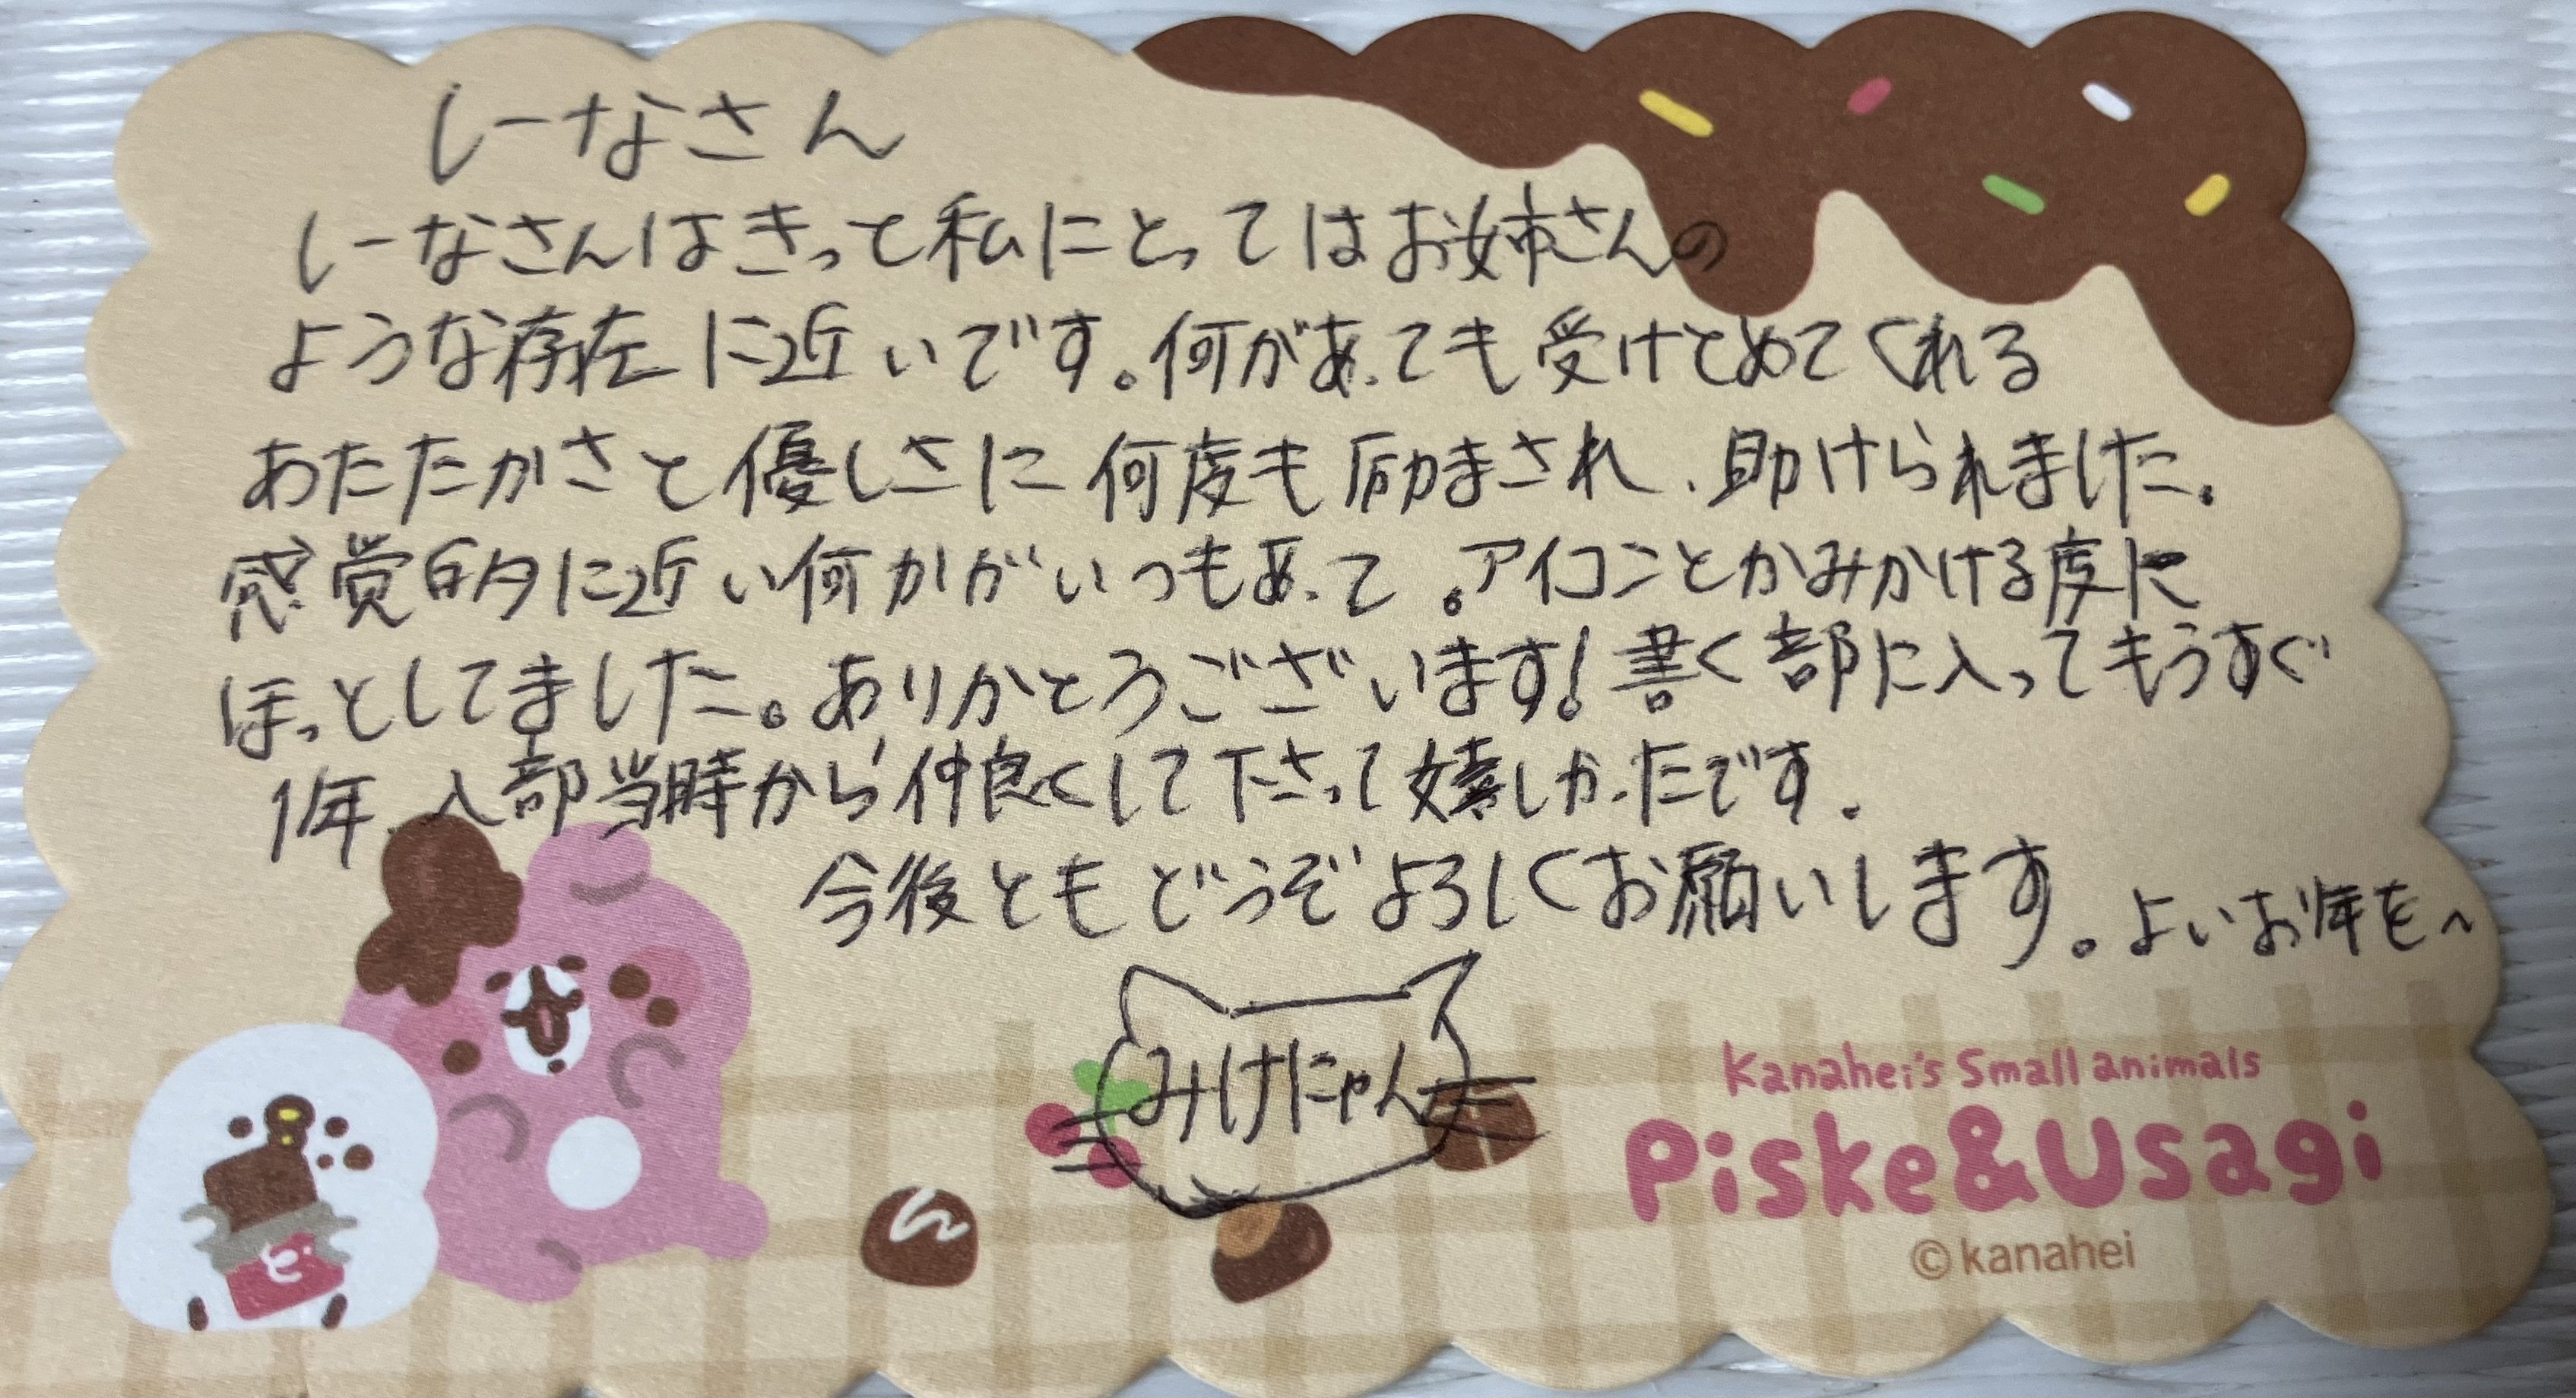 しーなさん
しーなさんはきっと私にとってはお姉さんの
ような存在に近いです。何があっても受けとめてくれる
あたたかさと優しさに何度も励まされ、助けられました。
感覚的に近い何かがいつもあって。アイコンとかみかける度に
ほっとしてました。ありがとうございます!書く部に入ってもうすぐ
1年、入部当時から仲良くして下さって嬉しかったです。
今後ともどうぞよろしくお願いします。よいお年を〜
みけにゃん
Kanahei's Small animals
Piske&Usagi
©kanahei